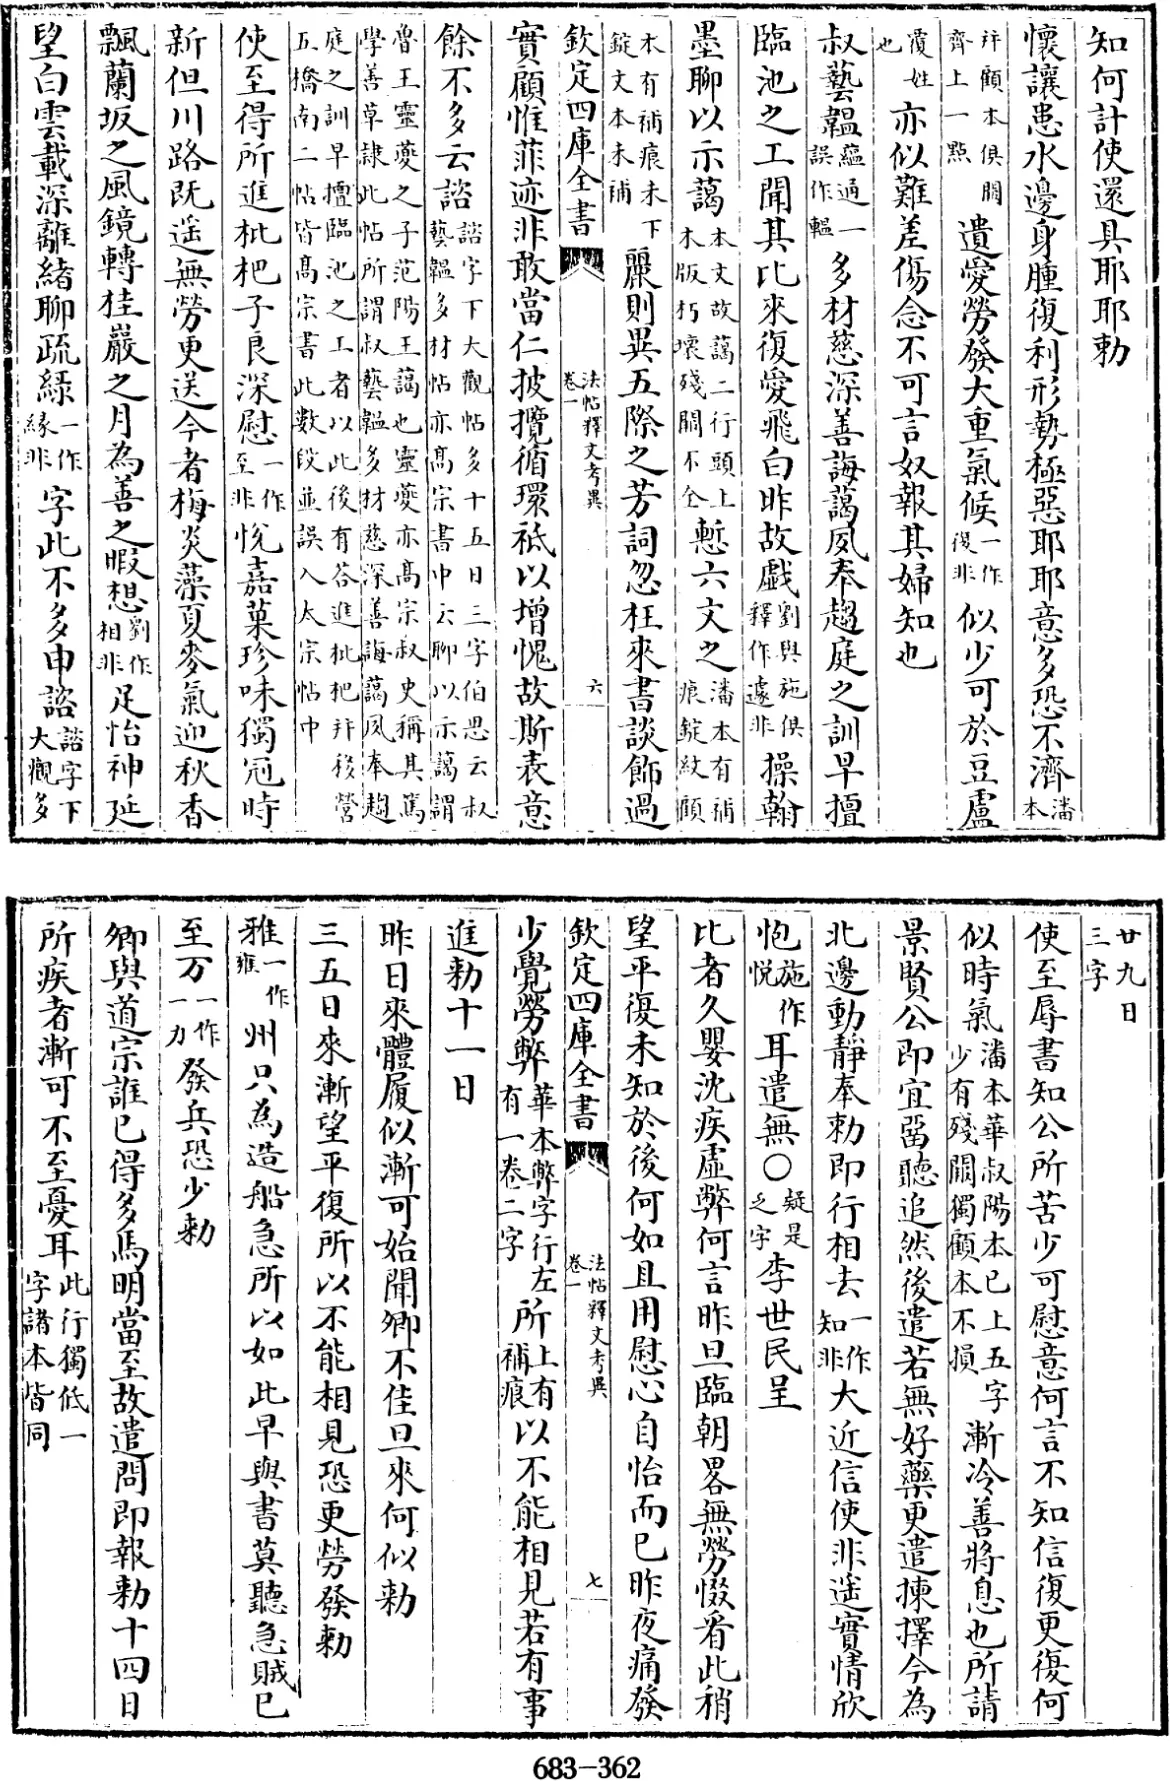 知何計使還具耶耶勅
懷讓患水邊身腫復利形勢極惡耶耶意多恐不濟潘本
并顧本俱闕齊上一㸃遺愛勞發大重氣候一作復非似少可於豆盧
覆姓也亦似難差傷念不可言奴報其婦知也
叔藝韞蘊通一誤作轀多材慈深善誨藹夙奉趨庭之訓早擅
臨池之工聞其比來復愛飛白昨故戲劉與施俱釋作遽非操翰
墨聊以示藹本文故藹二行頭上木版朽壞殘闕不全慙六文之潘本有補痕錠紋顧
本有補痕未下錠文本未補麗則異五際之芳詞忽枉來書談飾過
欽定四庫全書
法帖釋文考異
卷一
六
實顧惟菲迹非敢當仁披攬循環祗以增愧故斯表意
餘不多云諮諮字下大觀帖多十五日三字伯思云叔藝韞多材帖亦高宗書中云聊以示藹謂
魯王靈夔之子范陽王藹也靈夔亦高宗叔史稱其篤學善草隷此帖所謂叔藝韞多材慈深善誨藹夙奉趨
庭之訓早擅臨池之工者以此後有荅進枇杷并移營五橋南二帖皆高宗書此數段並誤入太宗帖中
使至得所進枇杷子良深慰一作至非悅嘉菓珍味獨冠時
新但川路既遥無勞更送今者梅炎藻夏麥氣迎秋香
飄蘭坂之風鏡轉桂巖之月為善之暇想劉作相非足怡神延
望白雲載深離緒聊疏綠一作緣非字此不多申諮諮字下大觀多
廿九日三字
使至辱書知公所苦少可慰意何言不知信復更復何
似時氣潘本華叔陽本已上五字少有殘闕獨顧本不損漸冷善將息也所請
景賢公即宜畱聽追然後遣若無好藥更遣揀擇今為
北邊動靜奉勑即行相去一作知非大近信使非遥實情欣
怉施作悅耳遣無〇疑是乏字李世民呈
比者久嬰沈疾虛弊何言昨旦臨朝畧無勞惙看此稍
望平復未知於後何如且用慰心自怡而已昨夜痛發
欽定四庫全書
法帖釋文考異
卷一
七
少覺勞弊華本弊字行左有一卷二字所上有補痕以不能相見若有事
進勑十一日
昨日來體履似漸可始聞卿不佳旦來何似勑
三五日來漸望平復所以不能相見恐更勞發勅
雅一作雍州只為造船急所以如此早與書莫聽急賊已
至万一作一力發兵恐少勅
卿與道宗誰已得多馬明當至故遣問即報勅十四日
所疾者漸可不至憂耳此行獨低一字諸本皆同
683-362